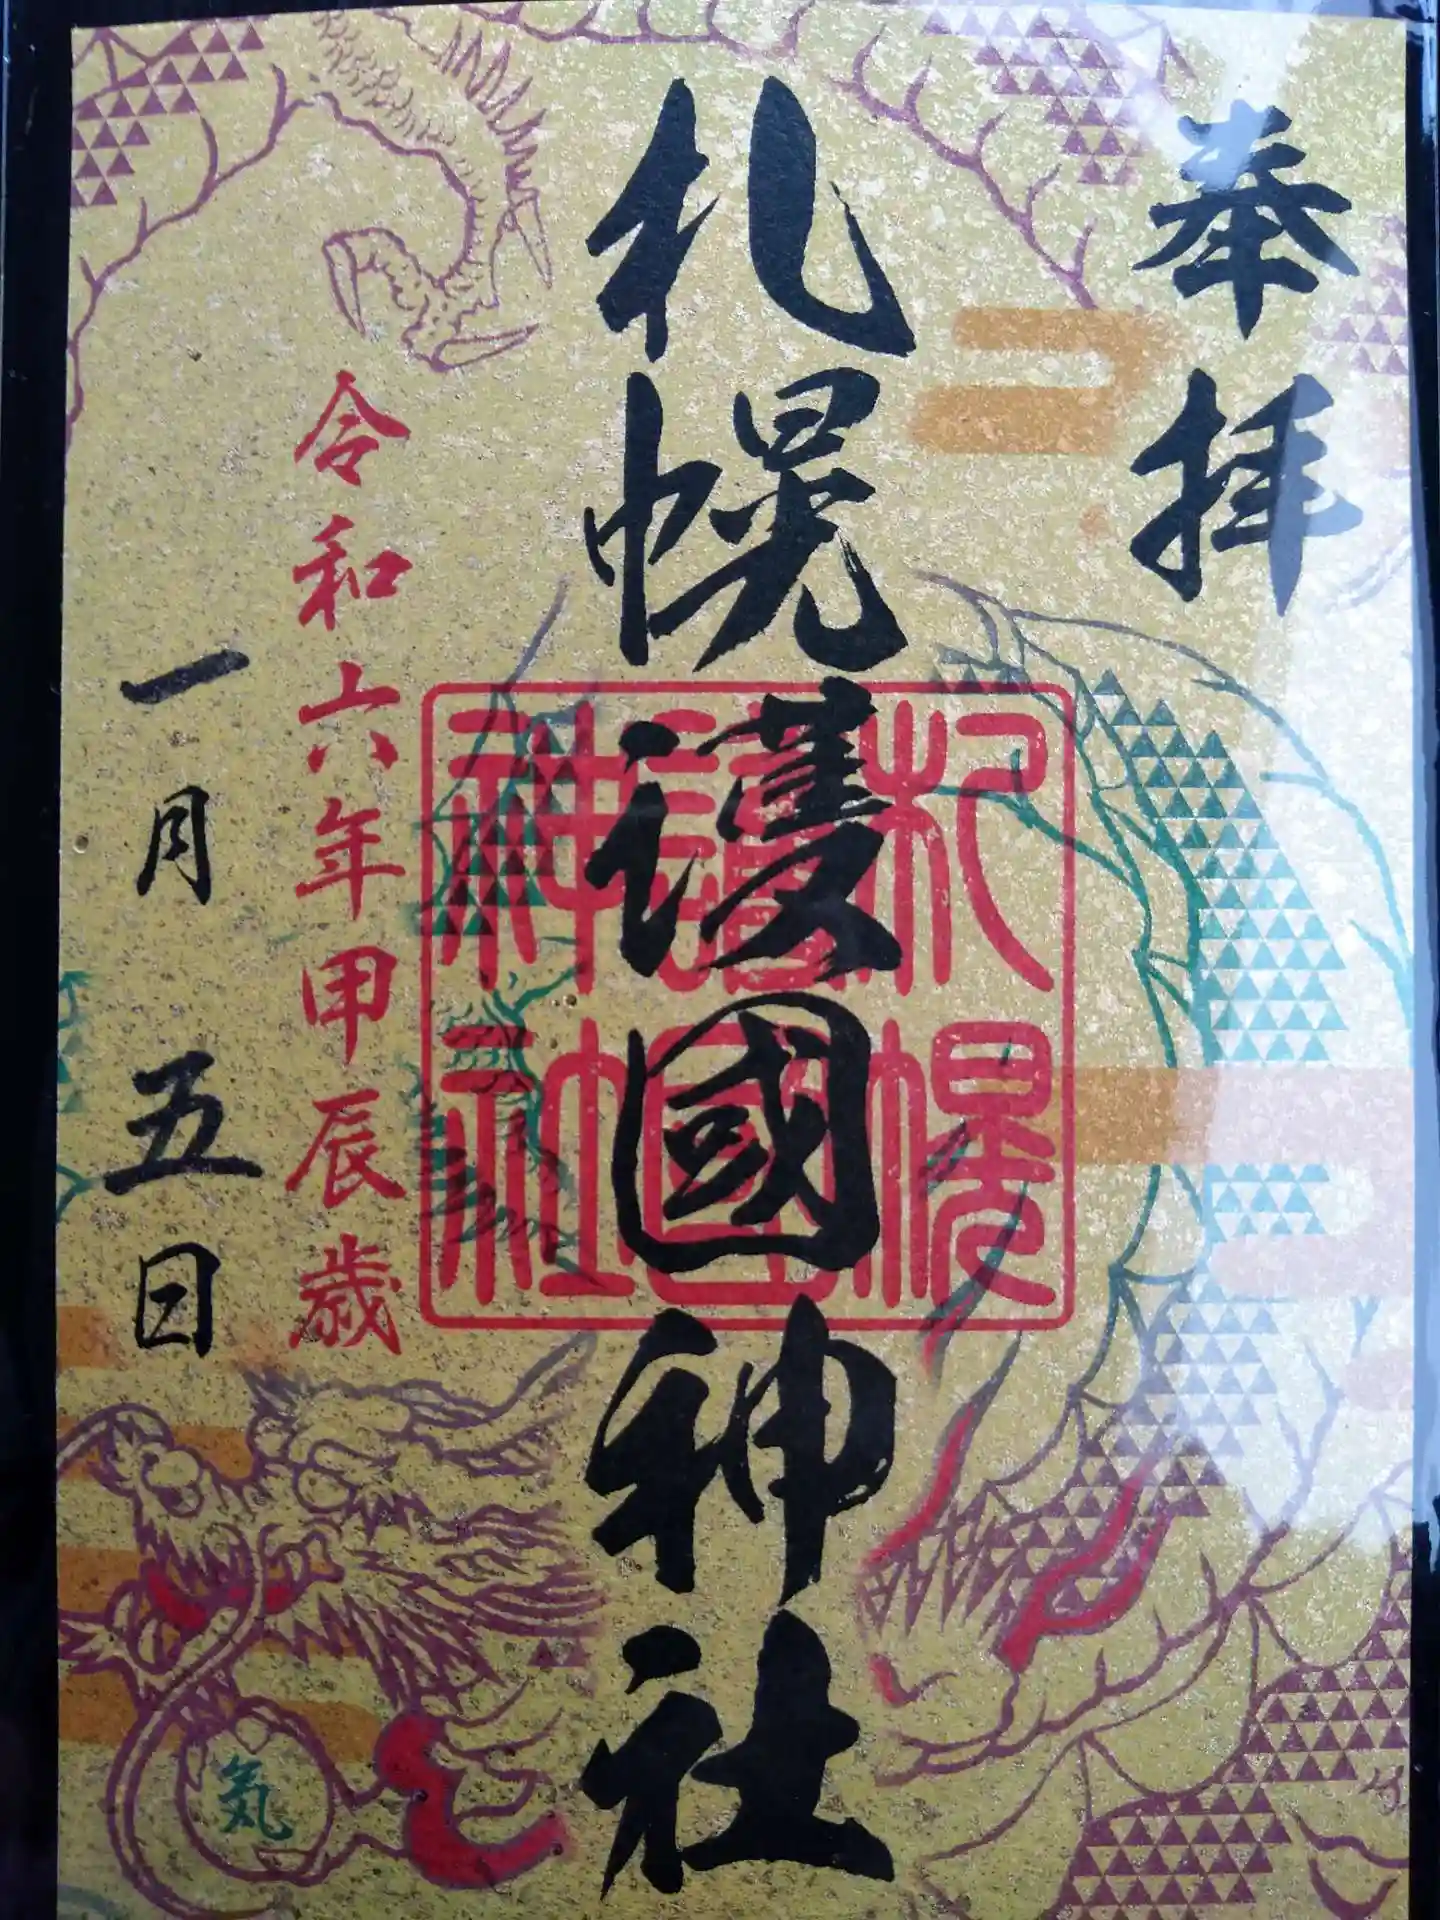 奉拝
札幌護國神社
札幌護國神社
令和六年甲辰歳
一月五日
気